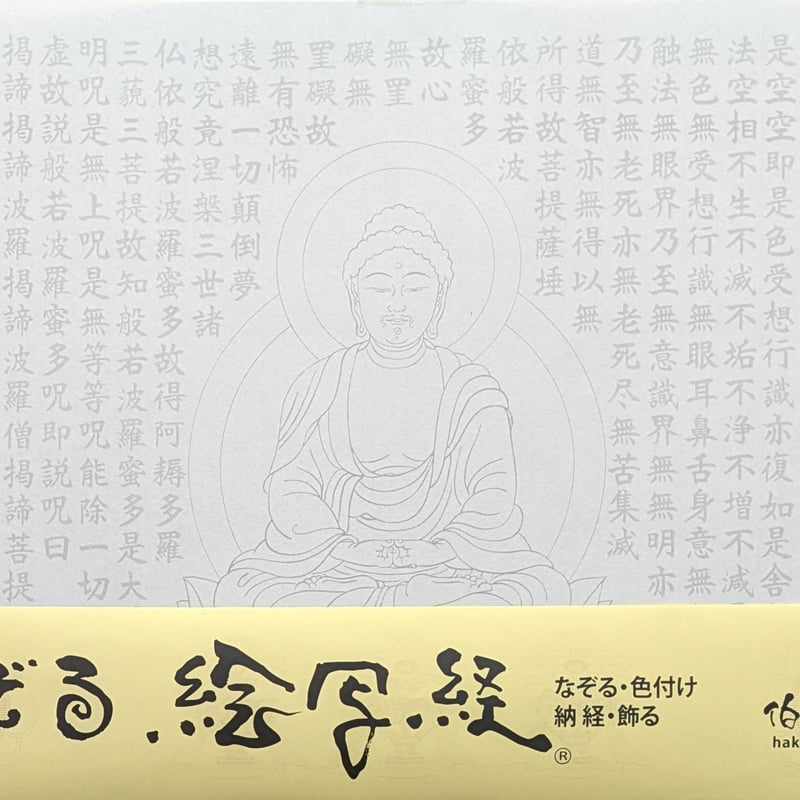 是空空即是色受想行識亦復如是舎
法空相不生不滅不垢不浄不増不減
無色無受想行識無眼耳鼻舌身意無
触法無眼界乃至無意識界無無明亦
乃至無老死亦無老死尽無苦集滅
道無智亦無得以無
所得故菩提薩埵
依般若波
羅蜜多
故心
無罣
礙無
罣礙故
無有恐怖
遠離一切顛倒夢
想究竟涅槃三世諸
仏依般若波羅蜜多故得阿耨多羅
三藐三菩提故知般若波羅蜜多是大
明呪是無上呪是無等等呪能除一切
虚故説般若波羅蜜多呪即説呪曰
掲諦掲諦波羅掲諦波羅僧掲諦菩提
ぞる・絵写経®
なぞる・色付け
納経・飾る
伯
hak